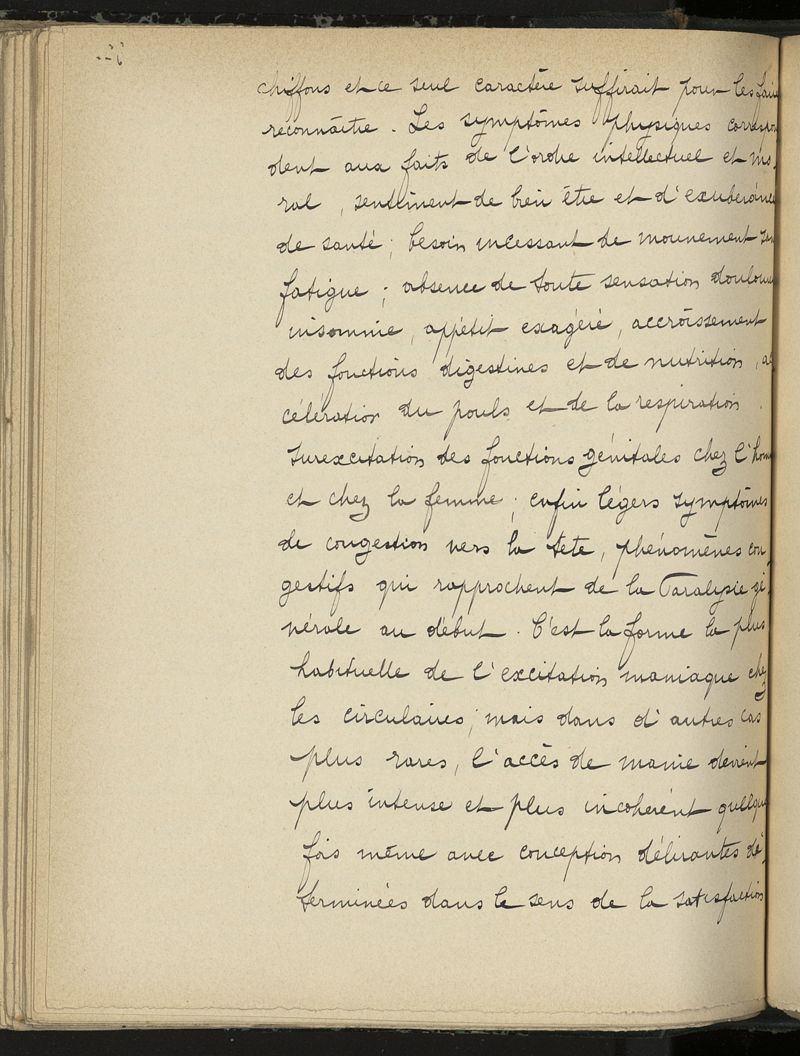 chiffons et ce seul caractère suffirait pour les faire
reconnaître. Les symptômes physiques correspon
dent aux faits de l'ordre intellectuel et mo-
ral, sentiment de bien être et d'exubérance
de santé; besoin incessant de mouvement sans
fatigue; absence de toute sensation doulour
insomnie, appétit exagéré, accroissement
des fonctions digestives et de nutrition, ac
célération du pouls et de la respiration.
Surexcitation des fonctions génitales chez l'hom
et chez la femme; enfin légers symptômes
de congestion vers la tête, phénomènes con
gestifs qui rapprochent de la Paralysie gé-
nérale au début. C'est la forme la plus
habituelle de l'excitation maniaque chez
les circulaires; mais dans d'autres cas
plus rares, l'accès de manie devient
plus intense et plus incohérent quelque
fois même avec conception délirantes dé-
terminées dans le sens de la satisfaction